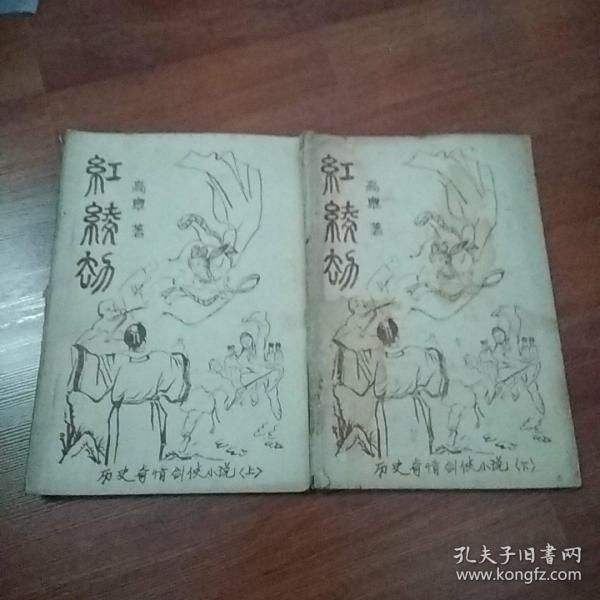 紅綾劫
高康 著
历史奇情剑侠小说〈上〉
紅綾劫
高康 著
历史奇情剑侠小说〈下〉
孔夫子旧書网
www.kongfz.com